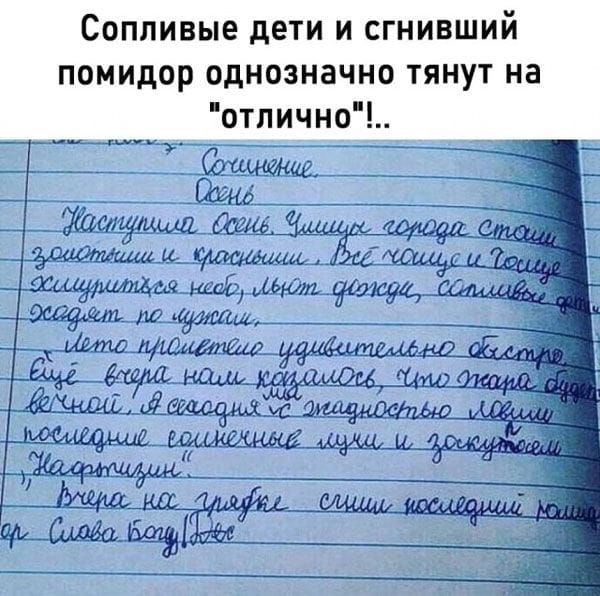 Сопливые дети и сгнивший
помидор однозначно тянут на
"отлично"!..
Сочинение.
Осень
Наступила Осень. Улицы города стали
золотыми и красными. Всё чаще и чаще
хмурится небо, льют дожди, сопливые дети
ходят по лужам.
Лето пролетело удивительно быстро.
Ещё вчера нам казалось, что жара будет
вечной. А сегодня мы с жадностью ловим
последние солнечные лучи и закупаем
„Нафтизин".
Вчера на грядке сгнил последний помид
ор Слава Богу!